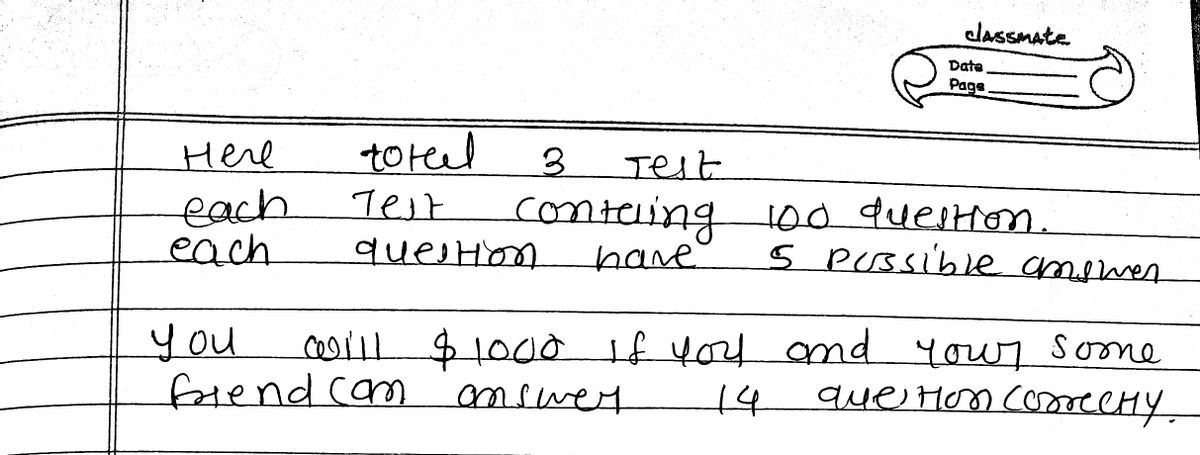 classmate
Date
Page
Here total 3 Test
each Test containg 100 question.
each question have 5 possible answer
you will $1000 if you and your some
friend can answer 14 question correctly.